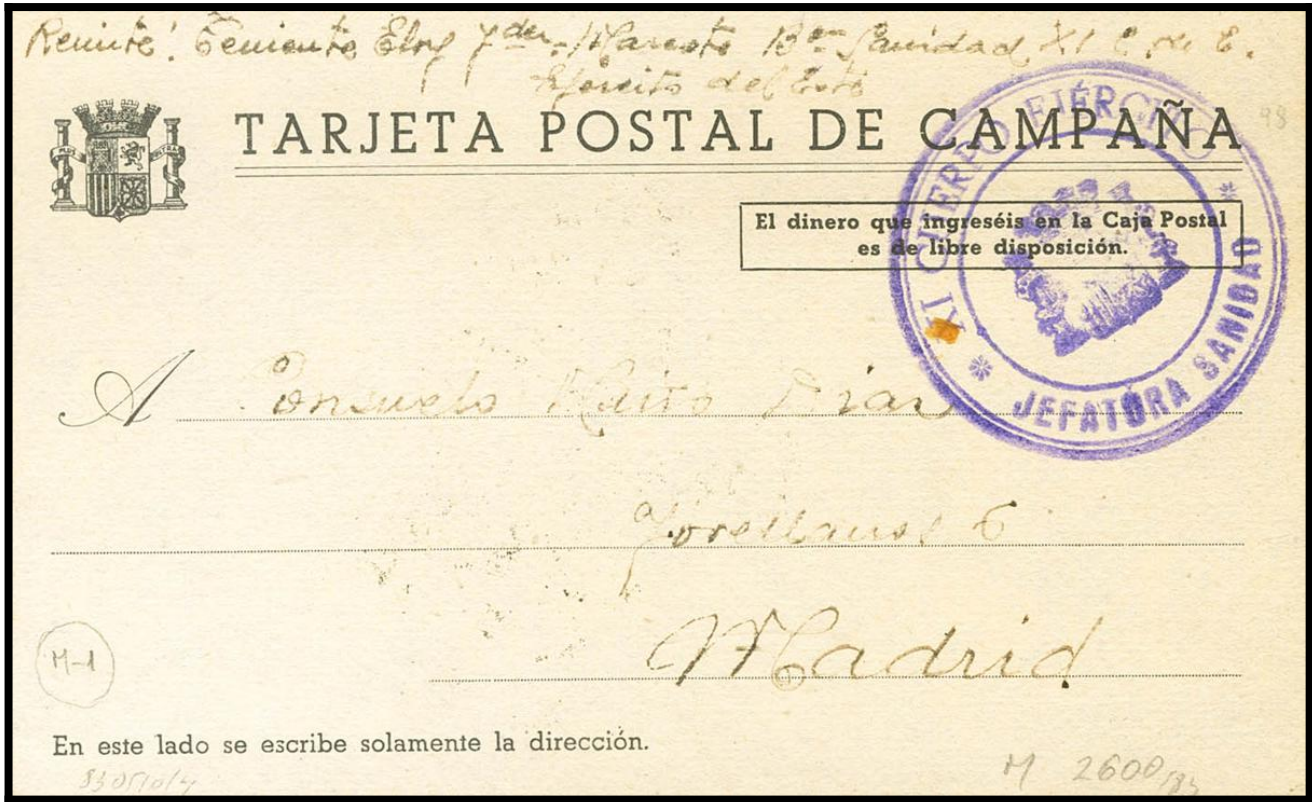 Remite: Teniente Eloy Fder. Maroto Bon Sanidad XI C. de E.
Ejercito del Este
TARJETA POSTAL DE CAMPAÑA
98
El dinero que ingreséis en la Caja Postal
es de libre disposición.
XI CUERPO EJÉRCITO
JEFATURA SANIDAD
A Consuelo Diaz
6
Madrid
M-1
En este lado se escribe solamente la dirección.
M 2600